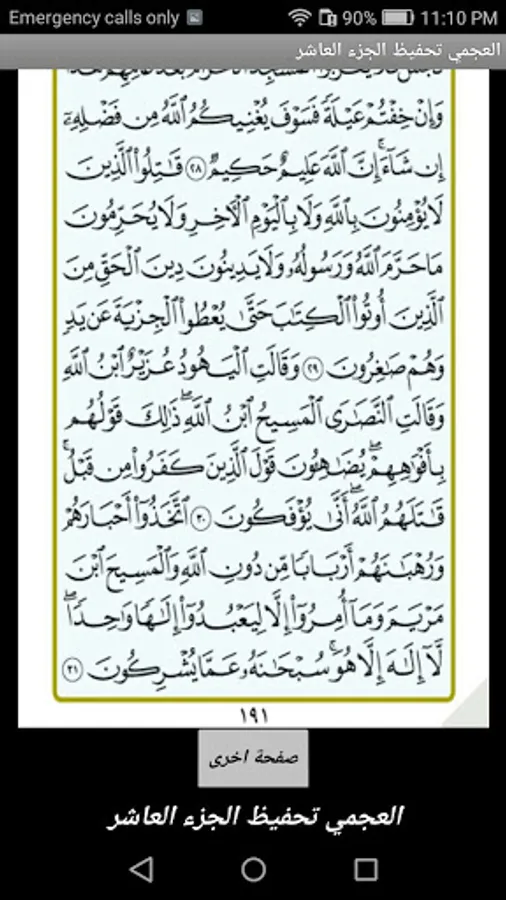 Emergency calls only 90% 11:10 PM
العجمي تحفيظ الجزء العاشر
وَإِنْ خِفْتُمْ عَيْلَةً فَسَوْفَ يُغْنِيكُمُ ٱللَّهُ مِن فَضْلِهِۦٓ
إِن شَآءَۚ إِنَّ ٱللَّهَ عَلِيمٌ حَكِيمٌ ٢٨ قَٰتِلُوا۟ ٱلَّذِينَ
لَا يُؤْمِنُونَ بِٱللَّهِ وَلَا بِٱلْيَوْمِ ٱلْءَاخِرِ وَلَا يُحَرِّمُونَ
مَا حَرَّمَ ٱللَّهُ وَرَسُولُهُۥ وَلَا يَدِينُونَ دِينَ ٱلْحَقِّ مِنَ
ٱلَّذِينَ أُوتُوا۟ ٱلْكِتَٰبَ حَتَّىٰ يُعْطُوا۟ ٱلْجِزْيَةَ عَن يَدٍ
وَهُمْ صَٰغِرُونَ ٢٩ وَقَالَتِ ٱلْيَهُودُ عُزَيْرٌ ٱبْنُ ٱللَّهِ
وَقَالَتِ ٱلنَّصَٰرَى ٱلْمَسِيحُ ٱبْنُ ٱللَّهِۖ ذَٰلِكَ قَوْلُهُم
بِأَفْوَٰهِهِمْۖ يُضَٰهِـُٔونَ قَوْلَ ٱلَّذِينَ كَفَرُوا۟ مِن قَبْلُۚ
قَٰتَلَهُمُ ٱللَّهُۖ أَنَّىٰ يُؤْفَكُونَ ٣٠ ٱتَّخَذُوٓا۟ أَحْبَارَهُمْ
وَرُهْبَٰنَهُمْ أَرْبَابًا مِّن دُونِ ٱللَّهِ وَٱلْمَسِيحَ ٱبْنَ
مَرْيَمَ وَمَآ أُمِرُوٓا۟ إِلَّا لِيَعْبُدُوٓا۟ إِلَٰهًا وَٰحِدًاۖ
لَّآ إِلَٰهَ إِلَّا هُوَۚ سُبْحَٰنَهُۥ عَمَّا يُشْرِكُونَ ٣١
١٩١
صفحة اخرى
العجمي تحفيظ الجزء العاشر